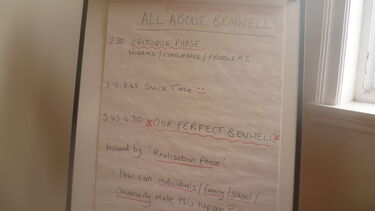 FUTURE
ALL ABOUT BENWELL
2.30 CRITIQUE PHASE
WORRIES / CONCERNS / PROBLEMS
3.15-3.45 Snack Time
3.45-4.30 *OUR PERFECT BENWELL*
Followed by 'Realisation Phase'
- How can individuals / family / School /
Community make this happen?